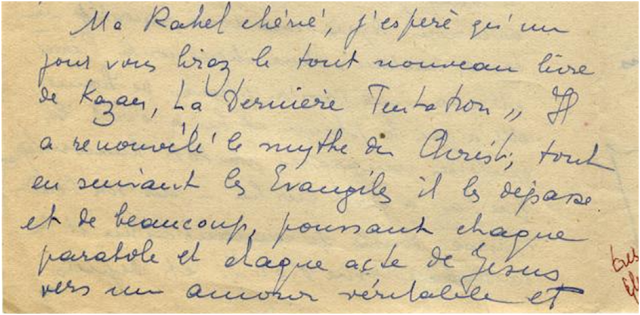 Ma Rahel chérie, j'espère qu'un
jour vous lirez le tout nouveau livre
de Kazan, La Dernière Tentation ,, Il
a renouvélé le mythe du Christ, tout
en suivant les Evangiles il les dépasse
et de beaucoup, poussant chaque
parabole et chaque acte de Jesus
vers un amour véritable et